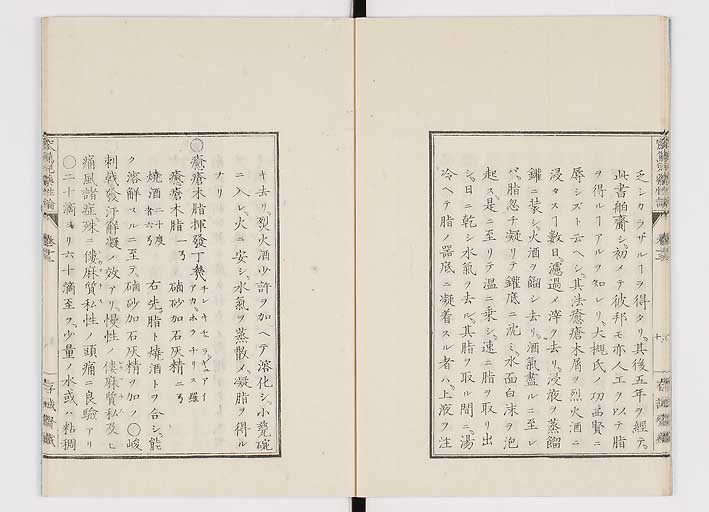 乏シカラザルヿヲ得タリ其後五年ヲ經テ
此書舶齎シ初メテ彼邦モ亦人工ヲ以テ脂
ヲ得ルヿアルヲ知レリ大槐氏ノ功苗賢ニ
辱シズト云ヘシ其法癒瘡木屑ヲ烈火酒ニ
浸タスヿ數日濾過〆滓ヲ去リ浸液ヲ蒸餾
鑵ニ裝シ火酒ヲ餾シ去リ酒氣盡ルニ至レ
バ脂忽チ凝リテ鑵底ニ沈ミ水面白沫ヲ泡
起ス是ニ至リテ温ニ乗シ速ニ脂ヲ取リ出
シ日ニ乾シ水氣ヲ去ル其脂ヲ取ル間ニ湯
冷ヘテ脂ノ器底ニ凝着スル者ハ上液ヲ注
キ去リ烈火酒少許ヲ加ヘテ溶化シ小甆碗
ニ入レ火ニ安シ水氣ヲ蒸散〆凝脂ヲ得ル
ナリ
◯癒瘡木脂揮發丁幾
癒瘡木脂 一ゟ 硇砂加石灰精 二ゟ
燒酒 二十度者六ゟ 右先脂ト燒酒トヲ合シ能
ク溶解スルニ至テ硇砂加石灰精ヲ加ノ◯峻
刺戟發汗解凝ノ效アリ慢性ノ僂麻質私及ヒ
痛風諸症殊ニ僂麻質私性ノ頭痛ニ良驗アリ
◯二十滴ヨリ六十滴至ヲ少量ノ水或ハ粘稠